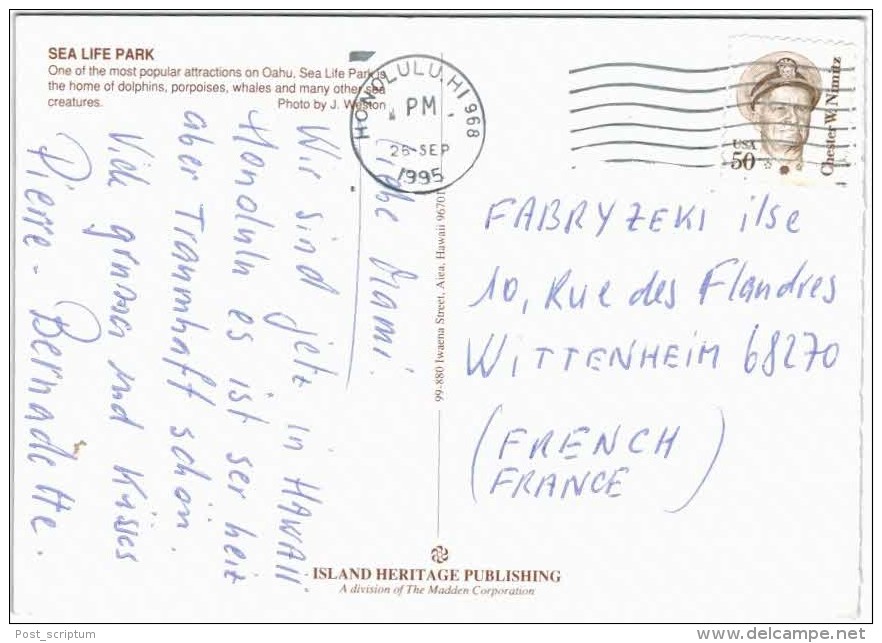 SEA LIFE PARK
One of the most popular attractions on Oahu, Sea Life Park is
the home of dolphins, porpoises, whales and many other sea
creatures.
Photo by J. Weston
HONOLULU, HI 968
PM
26-SEP
1995
USA
50
Chester W. Nimitz
Liebe Mami!
Wir sind jetz in HAWAII
Honolulu es ist ser heiz
aber Traumhaft schön.
Viele grusses und Küsses
Pierre - Bernadette.
99-880 Iwaena Street, Aiea, Hawaii 96701
FABRYZEKI ilse
10, Rue des Flandres
WITTENHEIM 68270
(FRENCH
FRANCE)
ISLAND HERITAGE PUBLISHING
A division of The Madden Corporation
Post_scriptum
delcampe.net